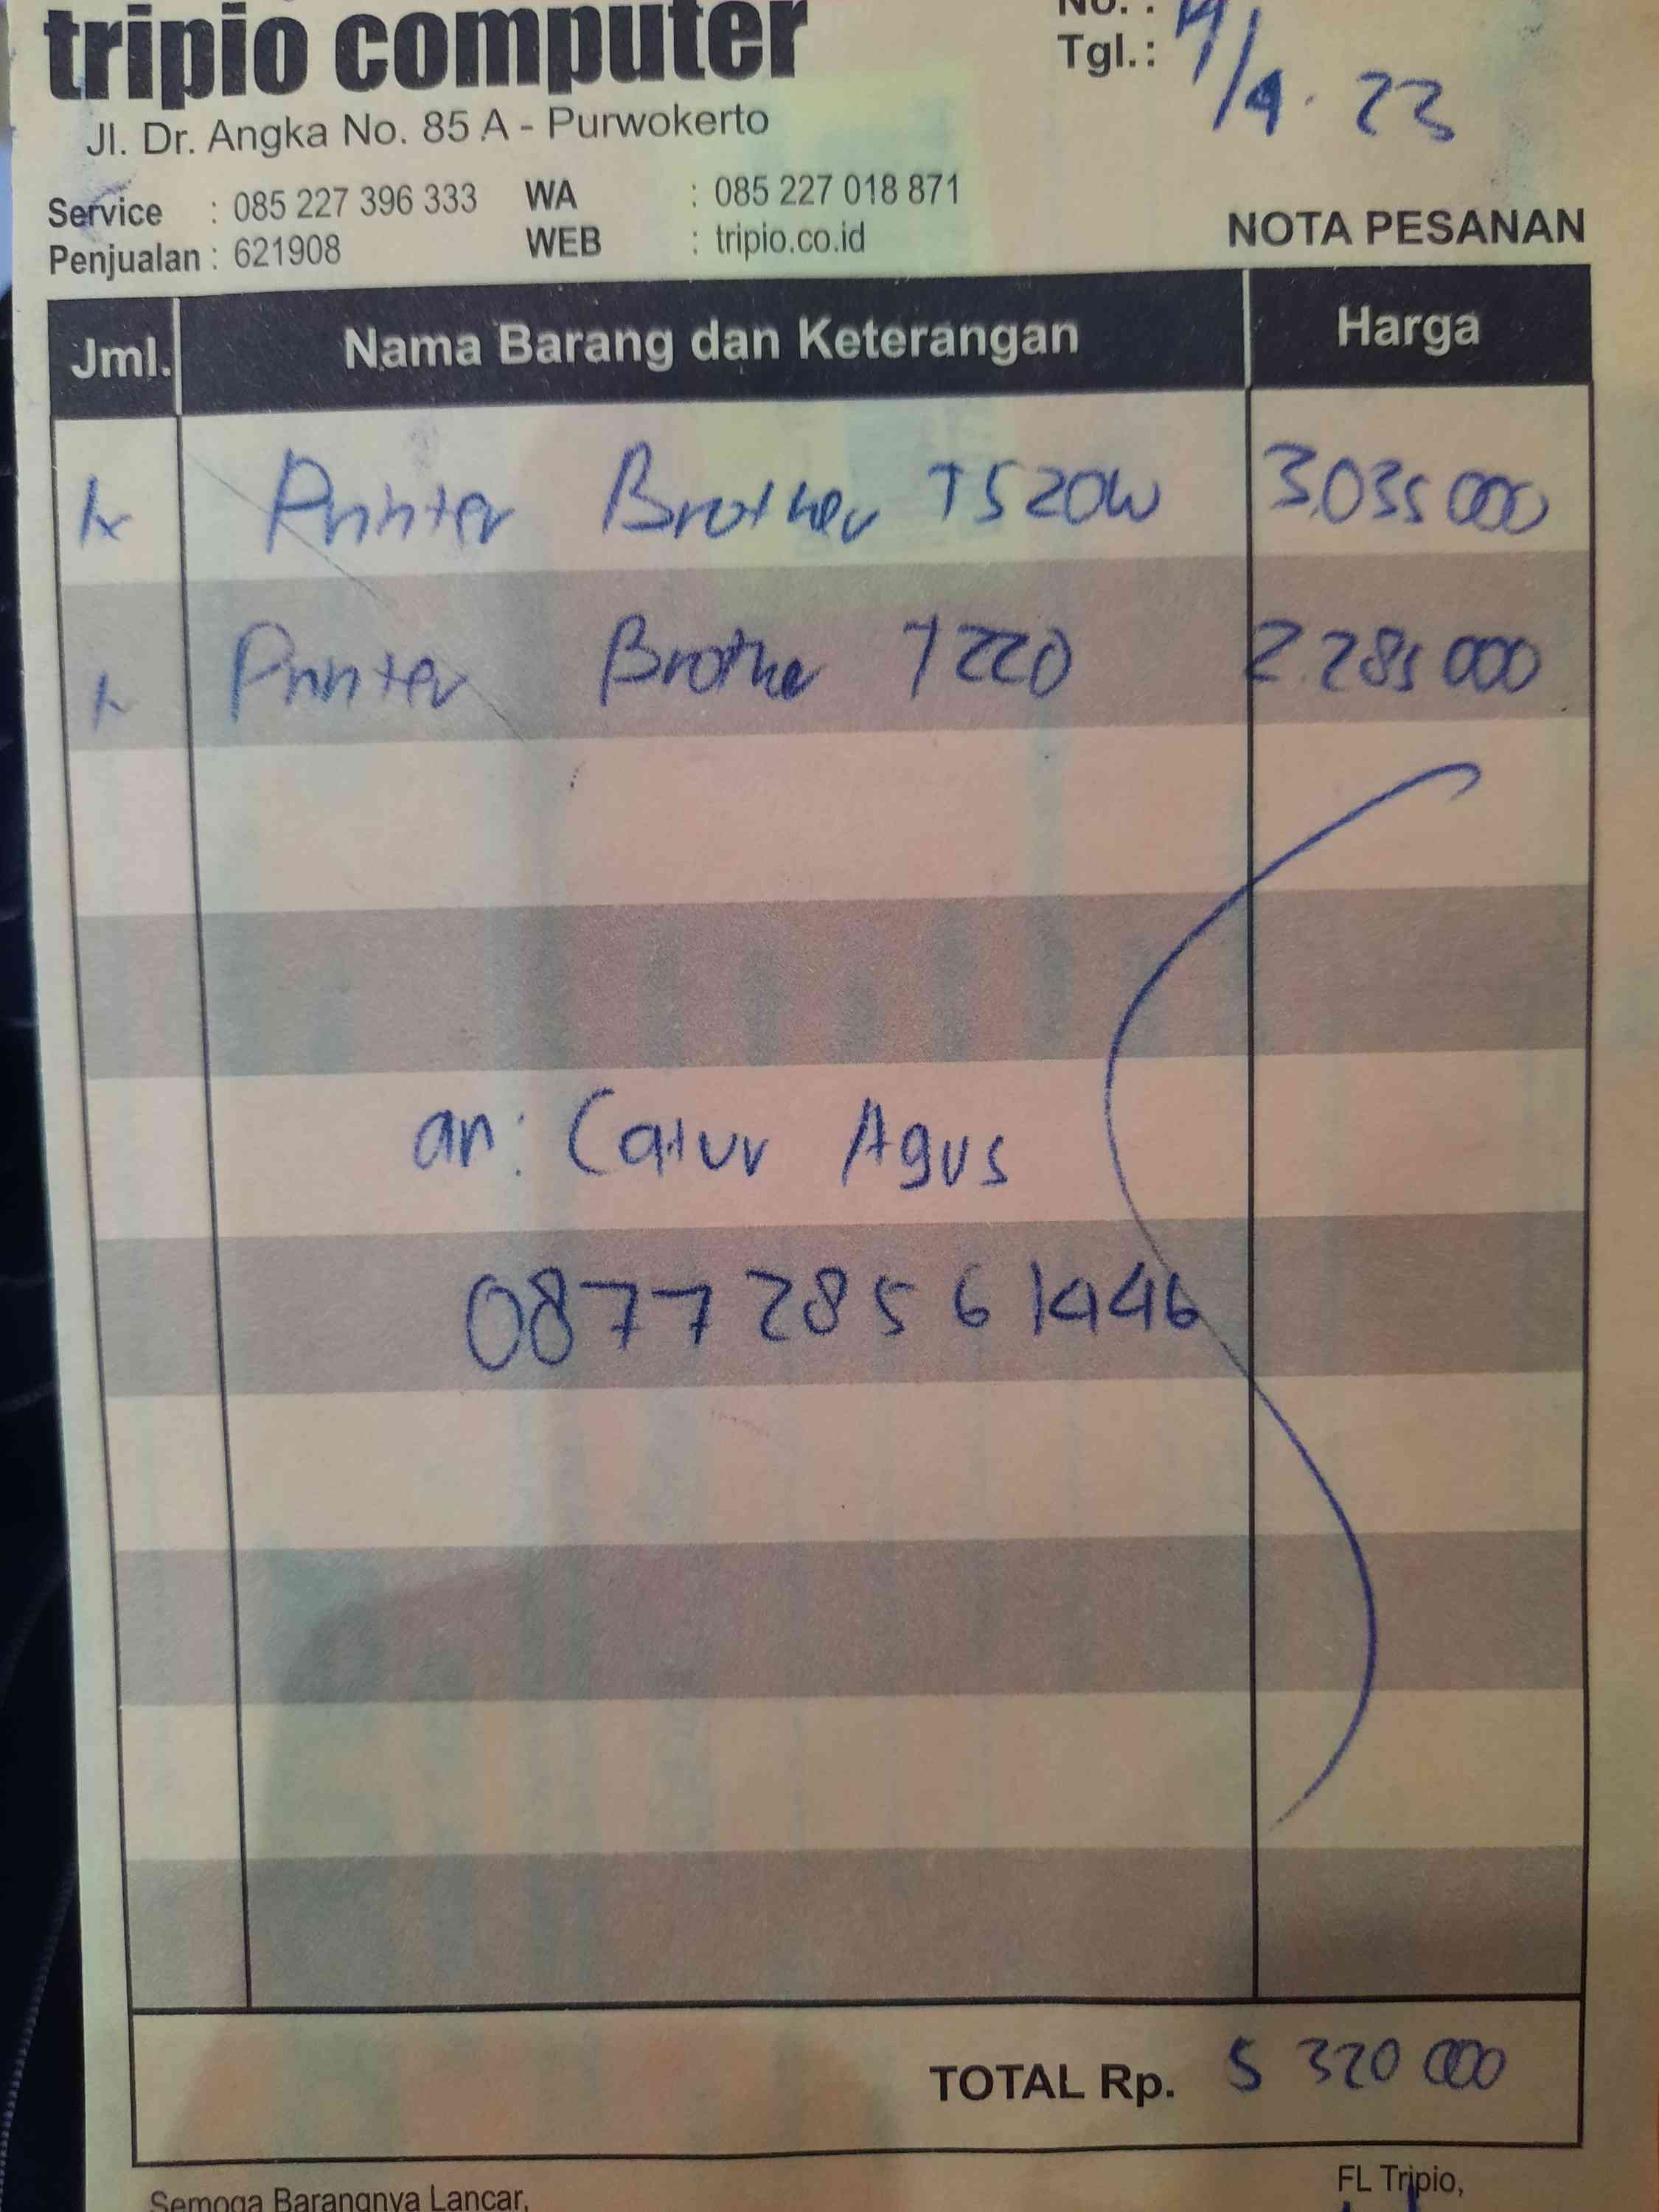 tripio computer
Jl. Dr. Angka No. 85 A - Purwokerto
No. :
Tgl.: /4. 23
Service : 085 227 396 333 WA : 085 227 018 871
Penjualan : 621908 WEB : tripio.co.id
NOTA PESANAN
Jml. Nama Barang dan Keterangan Harga
1x Printer Brother T520W 3.035 000
1x Printer Brother T220 2.285 000
an: Catur Agus
0877 285 6 1446
TOTAL Rp. 5 320 000
Semoga Barangnya Lancar,
FL Tripio,